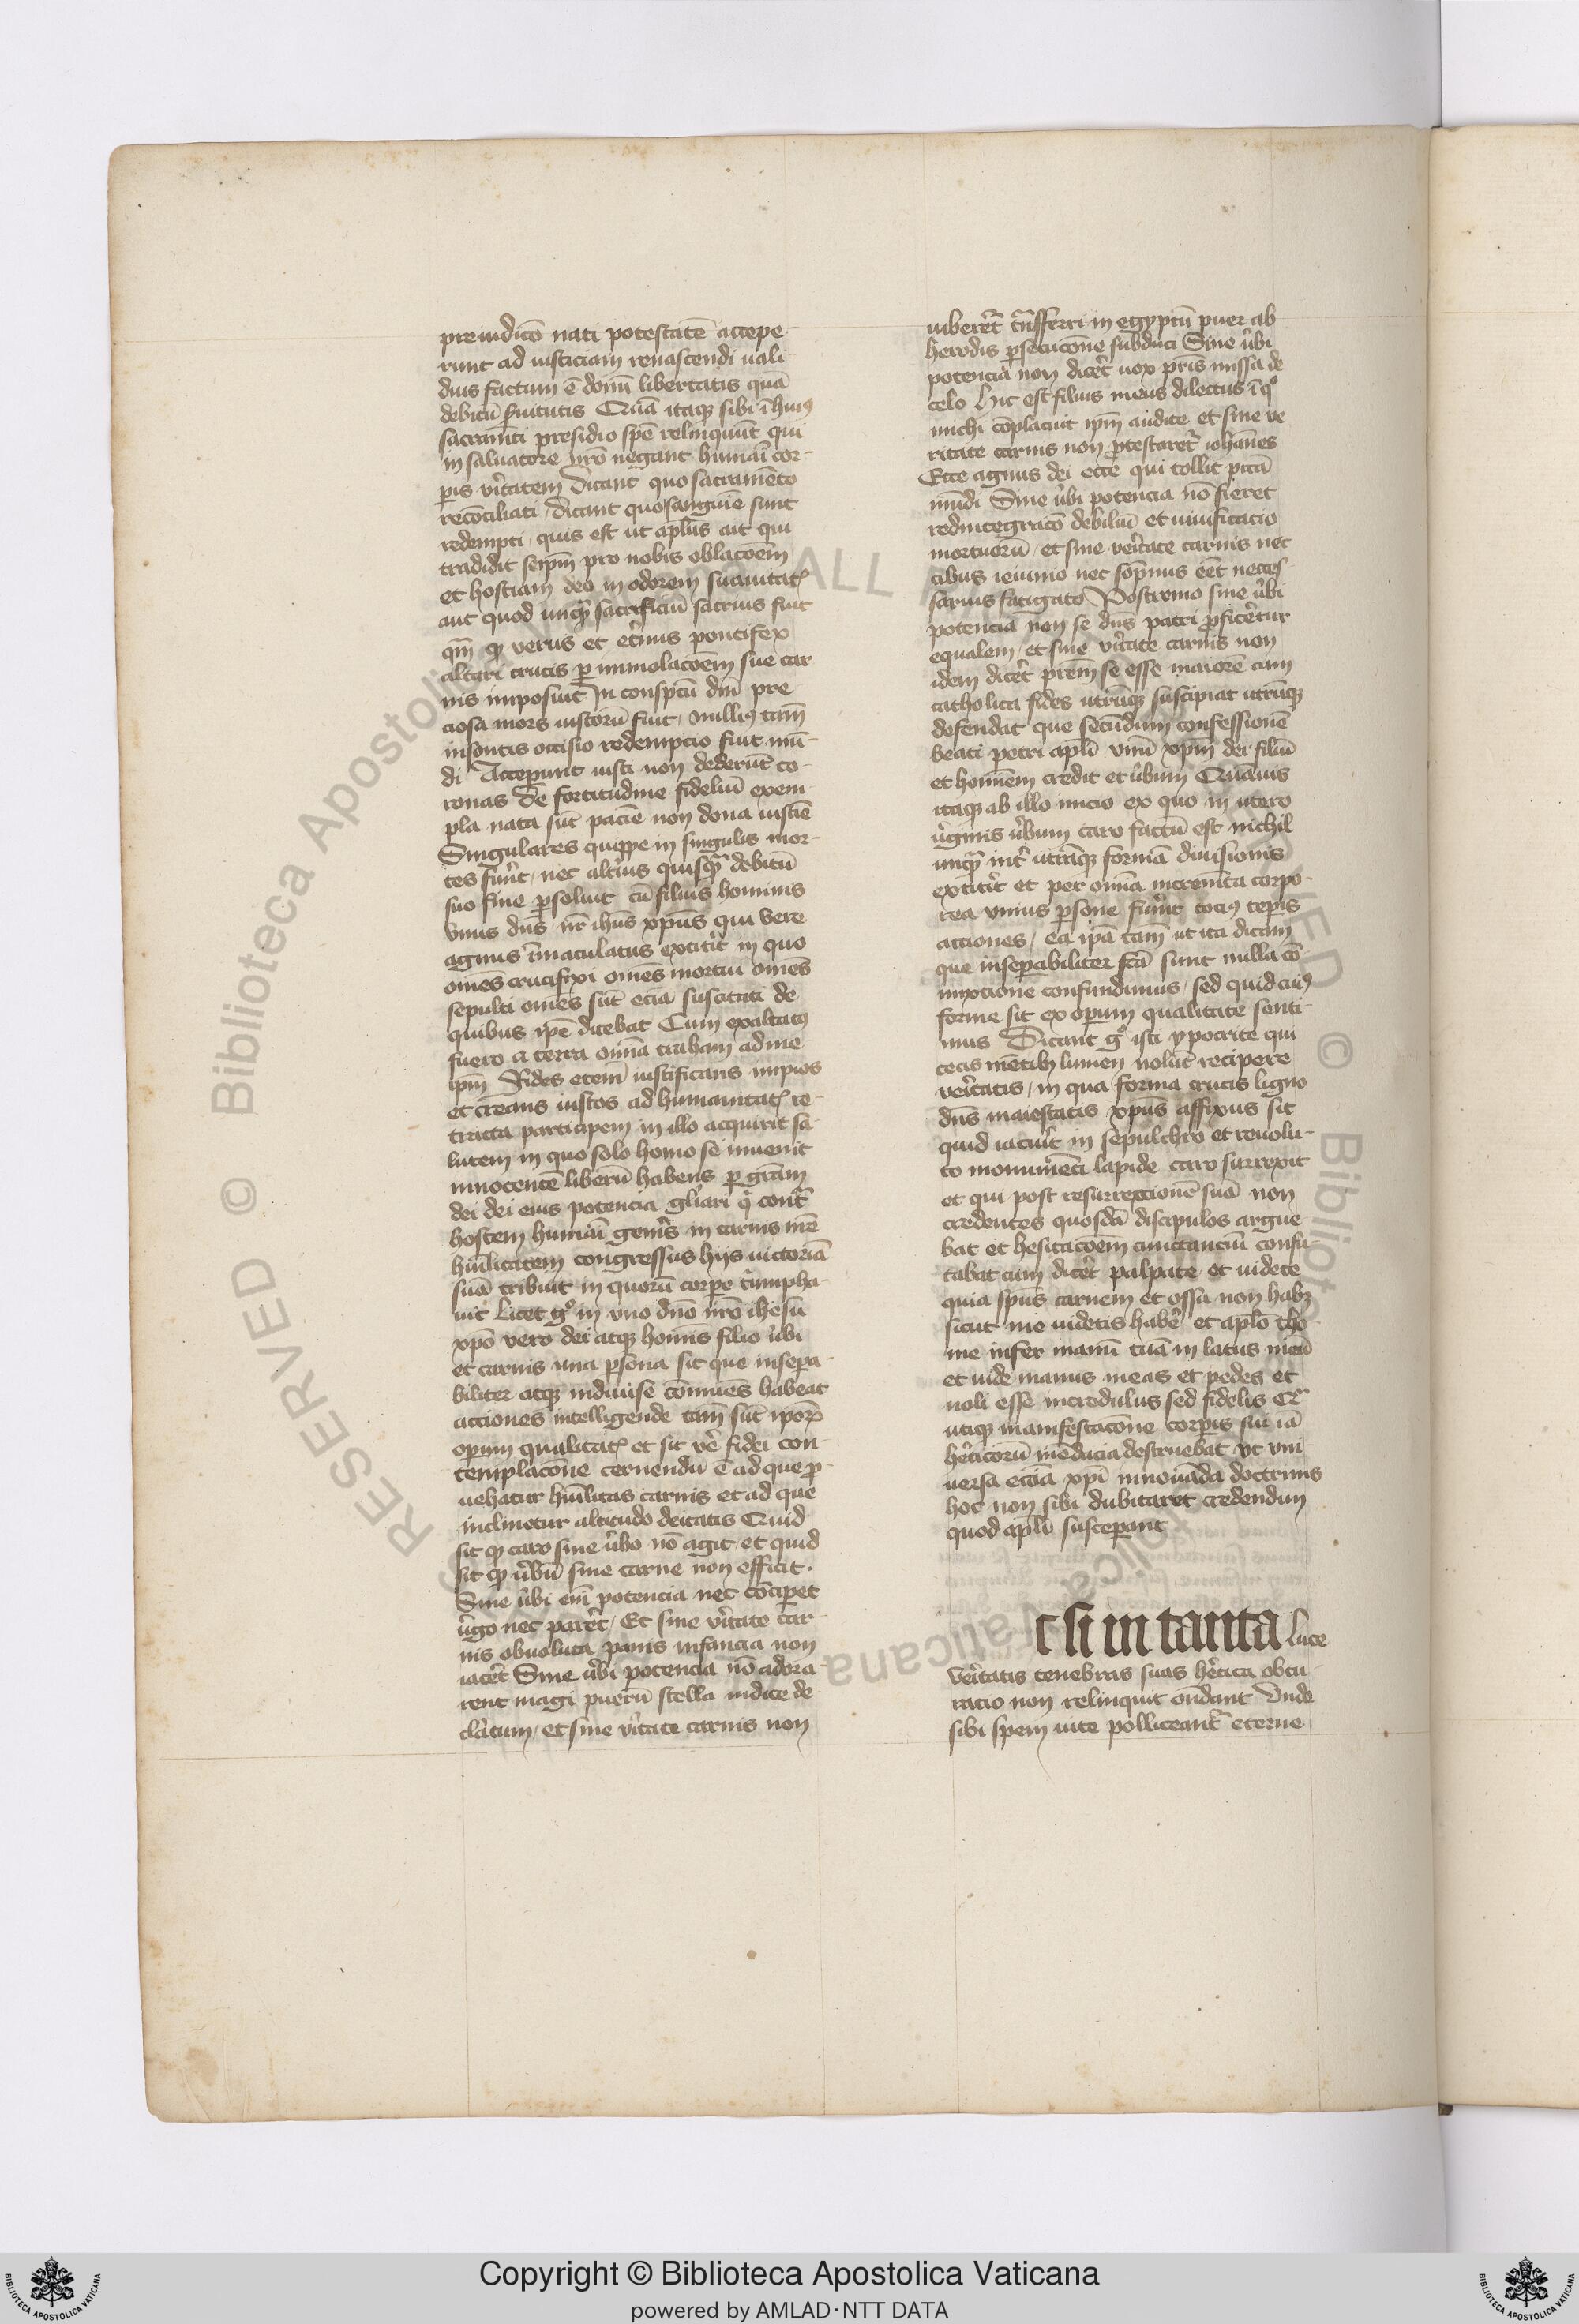 preiudicō nati potestatē accepe
runt ad iusticiam renascendi uali
dius factum ē donū libertatis quā
debitū s̄uitutis Quā itaqꝫ sibi ī hui⁹
sacramn̄ti presidio spē relinquūt qui
in saluatore nr̄o negant humāi cor
pis vi̓tatem Dicant quo sacramēto
recōciliati Dicant quo sanguīe sunt
redempti quis est ut apl̄us ait qui
tradidit seip̄m pro nobis oblacōem
et hostiam deo in odorem suauitat
aut quod unqꝫ sacrificiū sacrius fuit
qm̄ qꝫ verus et et̓nus pontifex
altari crucis p̱ immolacōem sue car
nis imposuit In conspc̄tu dn̄i pre
ciosa mors iustorū fuit nulli⁹ tam̄
insontis occisio redempcio fuit mū
di Accep̱unt iusti non dederūt co
ronas De fortitudine fideliū exem
pla nata sūt pacīe non dona iusticīe
Singulares quippe in singulis mor
tes fu̓nt nec alt̓ius quisqꝫ debitū
suo fine p̱soluit cū filius hominis
vnus dn̄s nr̄ ihūs xp̄us qui vere
agnus īmaculatus extitit in quo
om̄es crucifixi om̄es mortui om̄es
sepulti om̄es sūt eciā suscitati de
quibus ip̄e dicebat Cum exaltat⁹
fuero a terra omīa traham ad me
ip̄m Fides eteni iustificans impios
et creans iustos ad humanitat re
tracta participem in illo acquirit sa
lutem in quo solo homo se inuenit
innocentē liberū habens p̱ gr̄am
dei dei eius potencia gl̓iari q̓ cont̄
hostem humāi gen̓is in carnis nr̄e
hūilitatem congressus hijs uictoriā
suā tribuit in quorū corpe t̓umpha
uit Licet g° in vno dn̄o nr̄o ihesū
xp̄o vero dei atqꝫ homīs filio u̓bi
et carnis una p̱sona sit que insepa
biliter atqꝫ indiuise cōmunes habeat
acciones intelligende tam̄ sūt ipoꝝ
operum qualitat et sit ve̓ fidei con
templacōne cernendū ē ad que p̱
uehatur hūilitas carnis et ad que
inclinetur altitudo deitatis Quid
sit qꝫ caro sine u̓bo nō agit et quid
sit qꝫ u̓bū sine carne non efficit
Sine u̓bi eni potencia nec cōcip̱et
u̓go nec pare̓t Et sine vi̓tate car
nis obuoluta panis infancia non
iace̓t Sine u̓bi potencia nō adora
rent magi puerū stella indice de
cla̓tum et sine vi̓tate carnis non
iubere̓t tn̄sferri in egyptū puer ab
herodis p̱secucōne subduci Sine u̓bi
potencia non dice̓t uox pr̄is missa de
celo Hic est filius meus dilectus ī q°
michi cōplacuit ip̄m audite et sine ve
ritate carnis non p̱testare̓t iohānes
Ecce agnus dei ecce qui tollit pcc̄ā
mūdi Sine u̓bi potencia nō fieret
redintegracō debiliū et uiuificacio
mortuorū et sine ve̓itate carnis nec
cibus ieiunio nec sompnus e̅et neces
sarius fatigato Postremo sine u̓bi
potencia non se dn̄s patri p̱fice̓tur
equalem et sine vi̓tate carnis non
idem dice̓t prēm se esse maiorē cum
catholica fides utrūqꝫ suscipiat utrūqꝫ
defendat que secundum confessionē
beati petri apl̄i vnū xp̄m dei filiū
et homīem credit et u̓bum Quāuis
itaqꝫ ab illo inicio ex quo in utero
u̓ginis u̓bum caro factū est nichil
unqꝫ int̓ utrāqꝫ formā diuisionis
extiti̓t et per omīa increm̄ta corpo
rea vnius p̱sone fu̓int toci⁹ tepis
acciones ea ip̄a tam̄ ut ita dicam
que inseparabiliter fcā sunt nulla cō
mixcione confundimus sed quid cui⁹
forme sit ex opum qualitate senti
mus Dicant g° isti ypocrite qui
cecis mētibꝫ lumen nolūt recipere
ve̓itatis in qua forma crucis ligno
dn̄s maiestatis xp̄us affixus sit
quid iacui̓t in sepulchro et reuolu
to monumēti lapide caro surrexit
et qui post resurrexionē suā non
credentes quosdā discipulos argue
bat et hesitacōem cunctanciū confu
tabat cum dice̓t palpate et uidete
quia sp̄us carnem et ossa non habꝫ
sicut me uidetis habe̓ et apl̄o tho
me infer manū tuā in latus meū
et uide manus meas et pedes et
noli esse incredulus sed fidelis
utiqꝫ manifestacōne corpis sui iā
he̓ticorū mēdacia destruebat ut vni
uersa ecc̄ia xp̄i innouāda doctrinis
hoc non sibi dubitaret credendum
quod apl̄i suscep̱ant
t si in tanta luce
ve̓itatis tenebras suas he̓tica obcu
racio non relinquit on̄dant vnde
sibi spem uite polliceant̓ eterne
RESERVED © Biblioteca Apostolica Vaticana
ALL
Copyright © Biblioteca Apostolica Vaticana
powered by AMLAD·NTT DATA
BIBLIOTECA APOSTOLICA VATICANA
BIBLIOTECA APOSTOLICA VATICANA